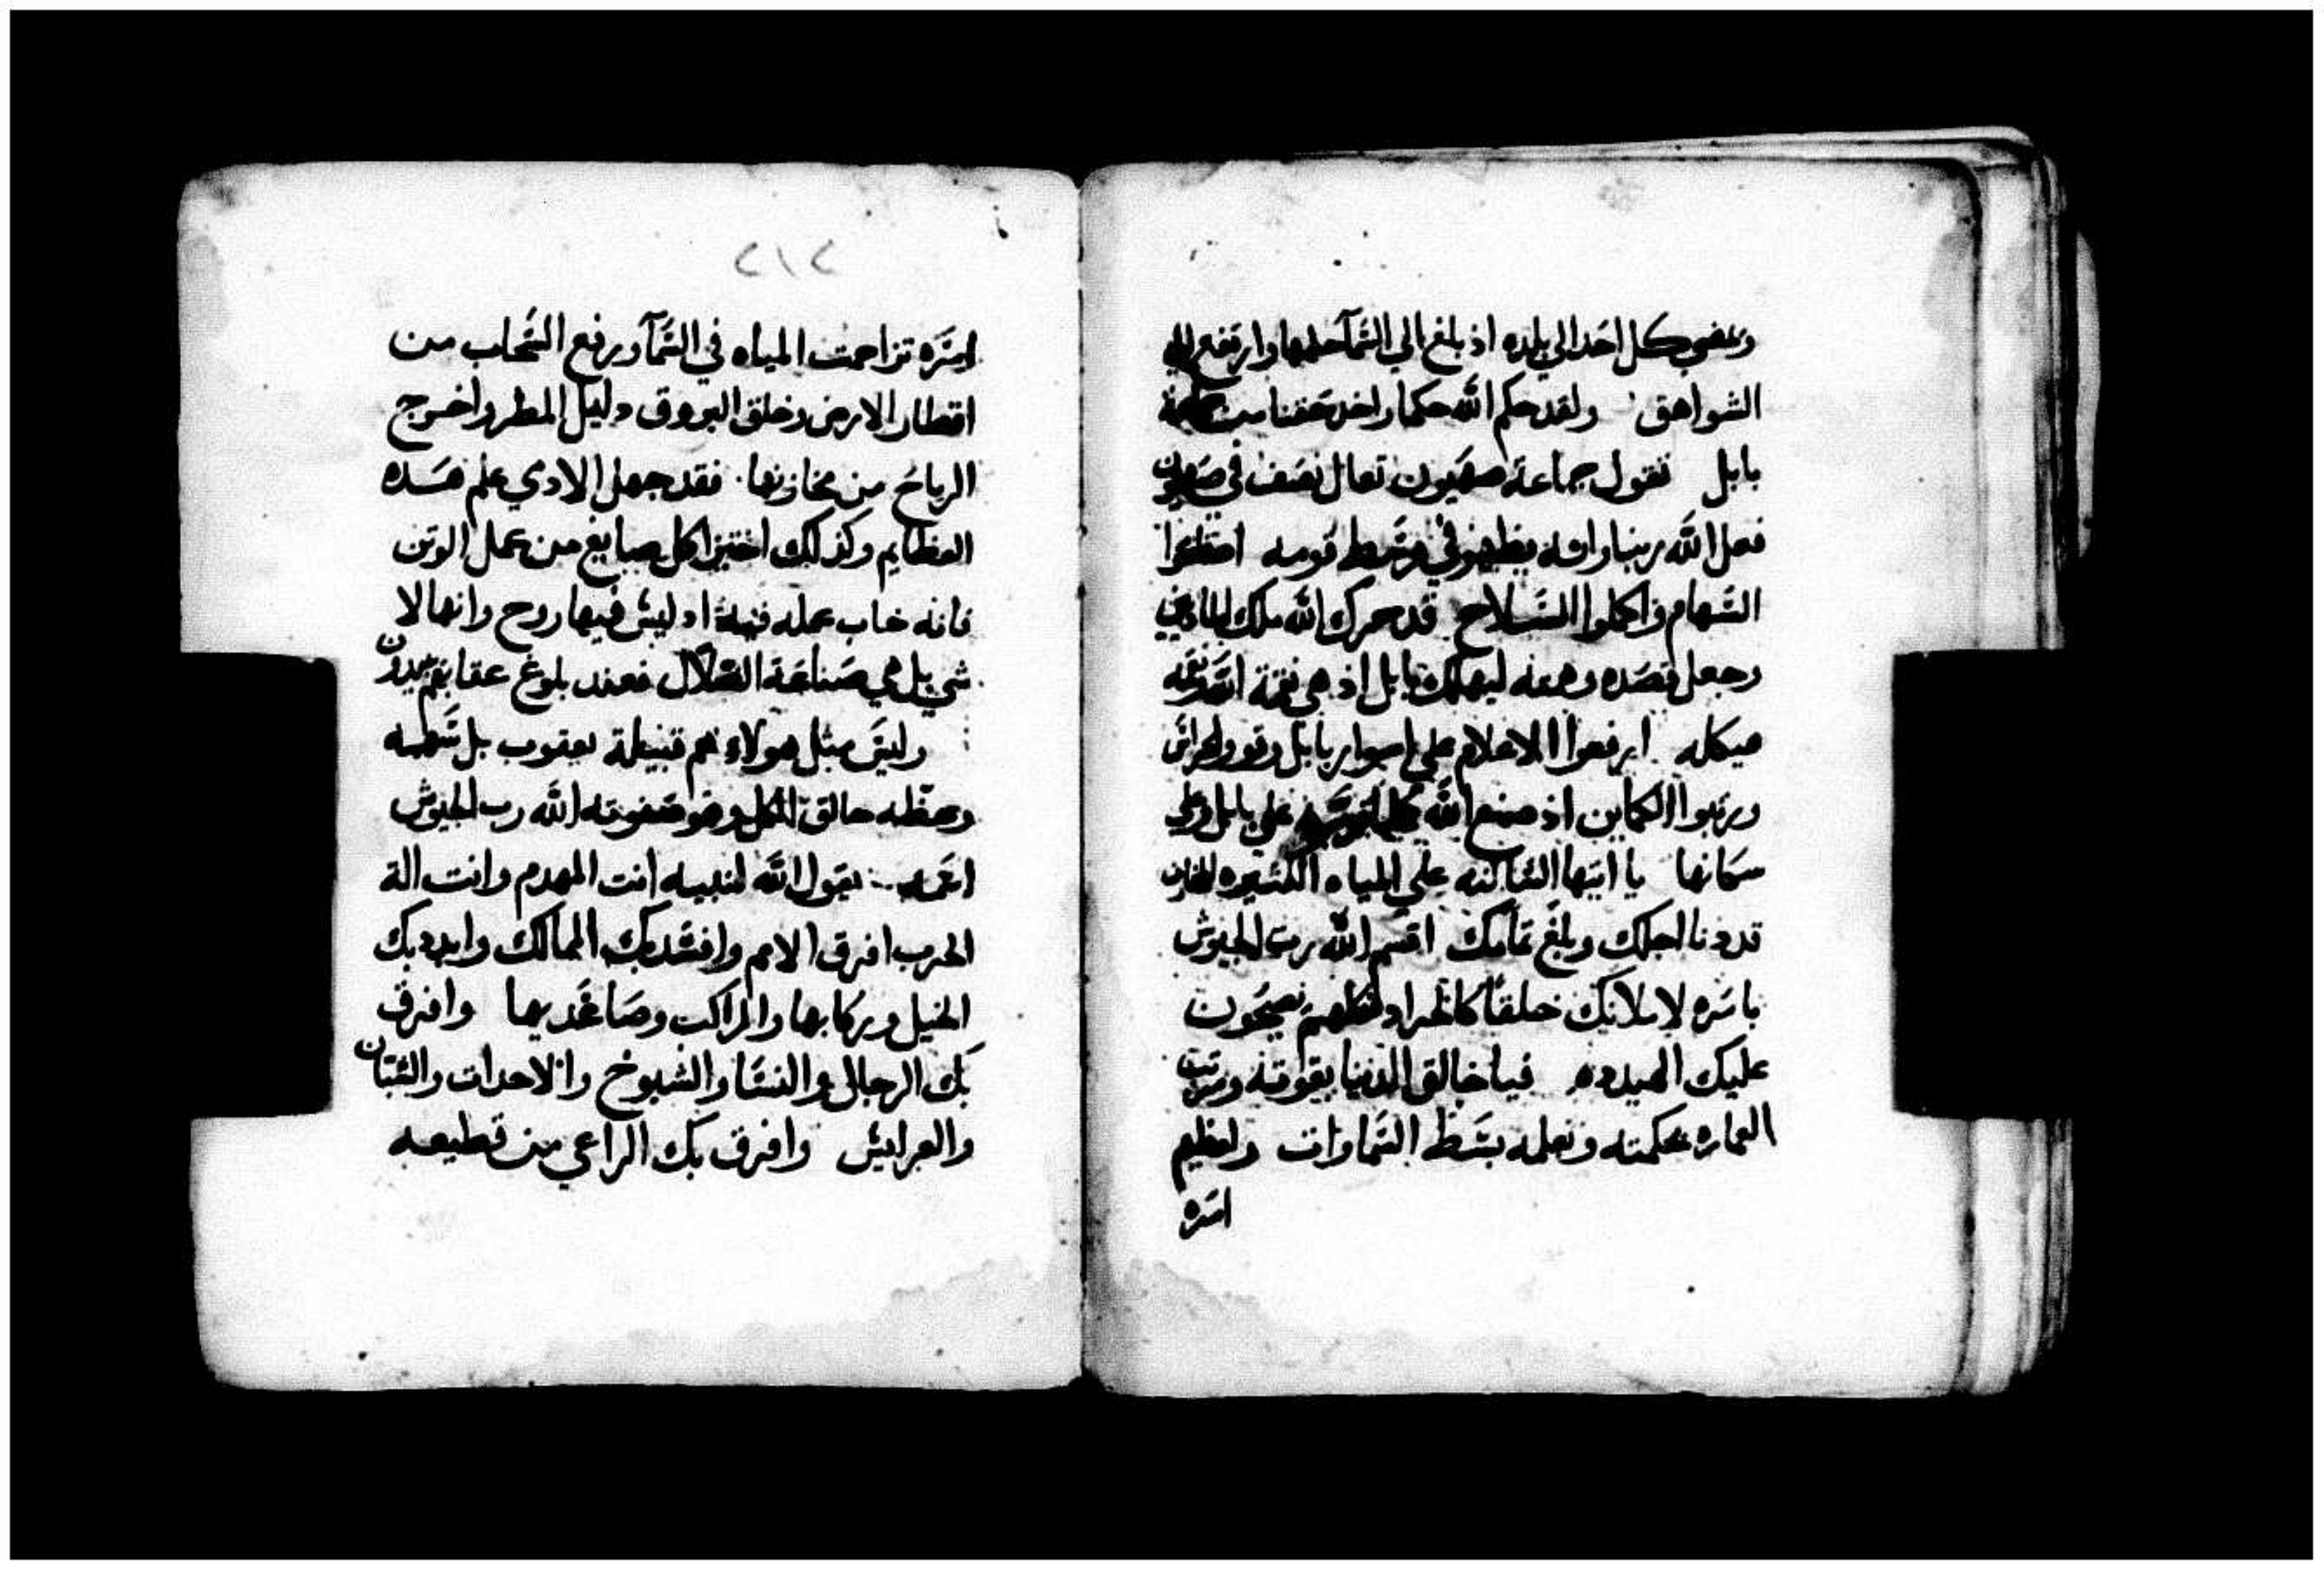 ويمضي كل احد الي بلده اذ بلغ الي السَّمآ حكمها وارتفع الي
الشواهق ولقد حكم الله حكما واخذ حقنا من
بابل تقول جماعة صهيون تعال نصف في صهيون
فعل الله ربنا وانه يظهر في وسط قومه اصقلوا
السَّهام واكملوا السَّلاح قد حرك الله ملك الماذيين
وجعل قصده وهمه ليهلك بابل اذ هي نقمة الله نقمة
هيكله ارفعوا الاعلام علي اسوار بابل وقووا الحراس
ورتبوا الكماين اذ صنع الله علي بابل وعلي
سكانها يا ايتها السَّاكنه علي المياه الكثيره
قد دنا اجلك وبلغ تمامك اقسم الله رب الجيوش
باسَره لاملانك خلقًا كالجراد فكلهم يصيحون
عليك الهيدده فيا خالق الدنيا بقوته ومرتب
العماره بحكمته وبعلمه بسَط السَّماوات ولعظيم
امَره
٢١٢
امَره تزاحمت المياه في السَّمآ ورفع السَّحاب من
اقطار الارض وخلق البروق دليل المطر واخرج
الرياح من مخازنها فقد جهل الادمي علم هَسَده
العظايم وكذلك اختبزا كل صايغ من عمل الوتن
فانه خاب عمله فيها اد ليسَ فيها روح وانها لا
شي بل هي صَناعَة الضلال فعند بلوغ عقابهم يبيدون
وليسَ مثل هولاء هم قبيلة يعقوب بل سَهمه
وحظه خالق الكل وهو صَفوته الله رب الجيوش
اسَمه يقول الله لنبيه انت المهدم وانت الة
الحرب افرق الامم وافسَد بك الممالك وابدد بك
الخيل وركابها والمراكب وصَاعَديها وافرق
بك الرجال والنسَا والشيوخ والاحداث والشبَّان
والعرايسَ وافرق بك الراعي من قطيعه